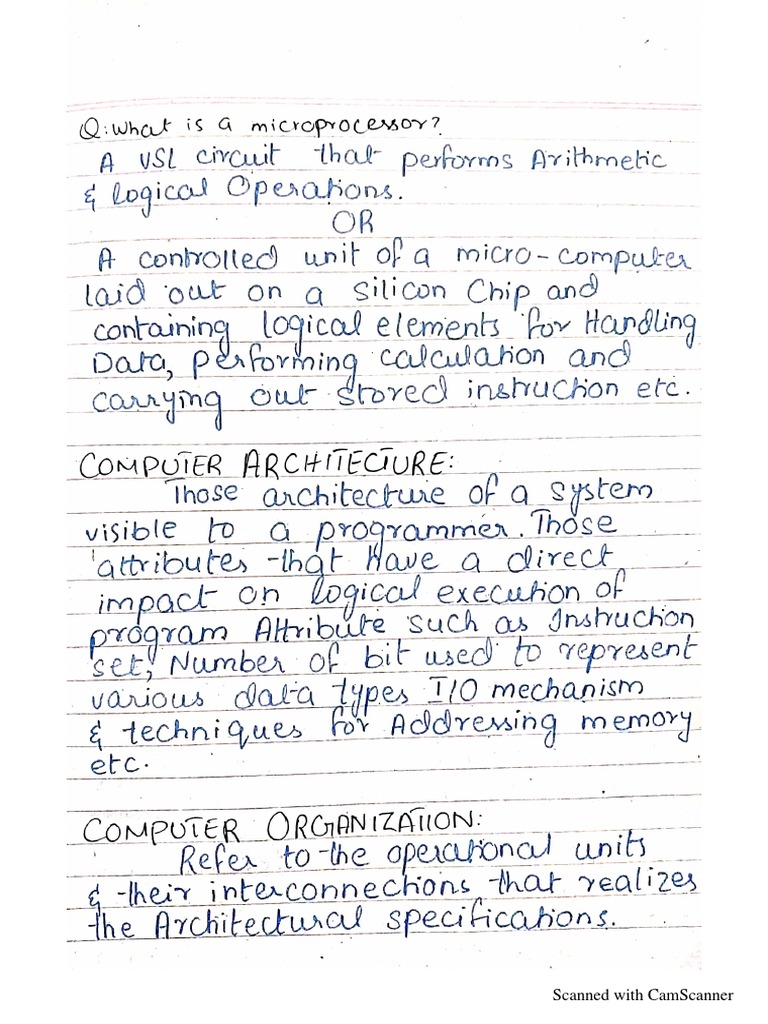 Q: What is a microprocessor?
A VSL circuit that performs Arithmetic
& logical Operations.
OR
A controlled unit of a micro-computer
laid out on a silicon Chip and
containing logical elements for Handling
Data, performing calculation and
carrying out stored instruction etc.
COMPUTER ARCHITECTURE:
Those architecture of a system
visible to a programmer. Those
attributes that Have a direct
impact on logical execution of
program Attribute such as Instruction
set, Number of bit used to represent
various data types I/O mechanism
& techniques for Addressing memory
etc.
COMPUTER ORGANIZATION:
Refer to the operational units
& their interconnections that realizes
the Architectural specifications.
Scanned with CamScanner